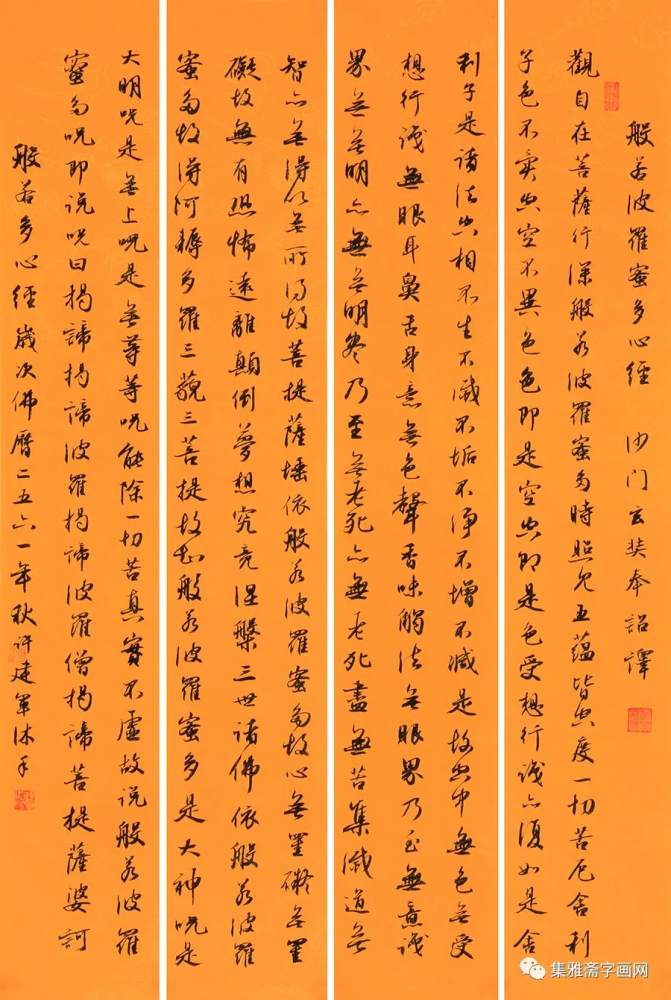 般若波羅蜜多心經 沙门玄奘奉詔譯
觀自在菩薩行深般若波羅蜜多時照見五蘊皆空度一切苦厄舍利
子色不異空空不異色色即是空空即是色受想行識亦復如是舍
利子是诸法空相不生不滅不垢不净不增不减是故空中無色无受
想行識無眼耳鼻舌身意無色聲香味觸法无眼界乃至無意識
界无无明亦無无明盡乃至无老死亦無老死盡無苦集滅道无
智亦无得以无所得故菩提薩埵依般若波羅蜜多故心无罣礙无罣
礙故無有恐怖遠離顛倒夢想究竟涅槃三世诸佛依般若波羅
蜜多故得阿耨多羅三藐三菩提故知般若波羅蜜多是大神咒是
大明咒是无上咒是无等等咒能除一切苦真實不虚故说般若波羅
蜜多咒即说咒曰揭諦揭諦波羅揭諦波羅僧揭諦菩提薩婆訶
般若多心經歲次佛曆二五六一年秋许建軍沐手
集雅斋字画网